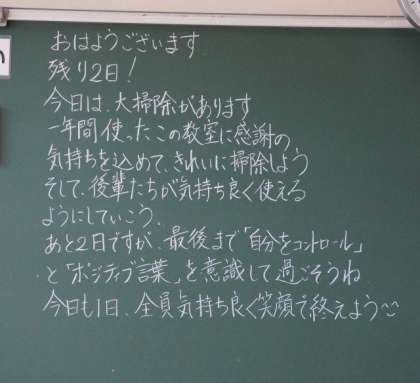 おはようございます
残り2日！
今日は、大掃除があります
一年間使ったこの教室に感謝の
気持ちを込めて、きれいに掃除しよう
そして、後輩たちが気持ち良く使える
ようにしていこう。
あと2日ですが、最後まで「自分をコントロール」
と「ポジティブ言葉」を意識して過ごそうね
今日も1日、全員気持ち良く笑顔で終えよう